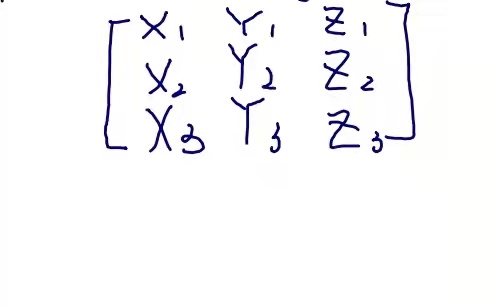 X₁ Y₁ Z₁
X₂ Y₂ Z₂
X₃ Y₃ Z₃